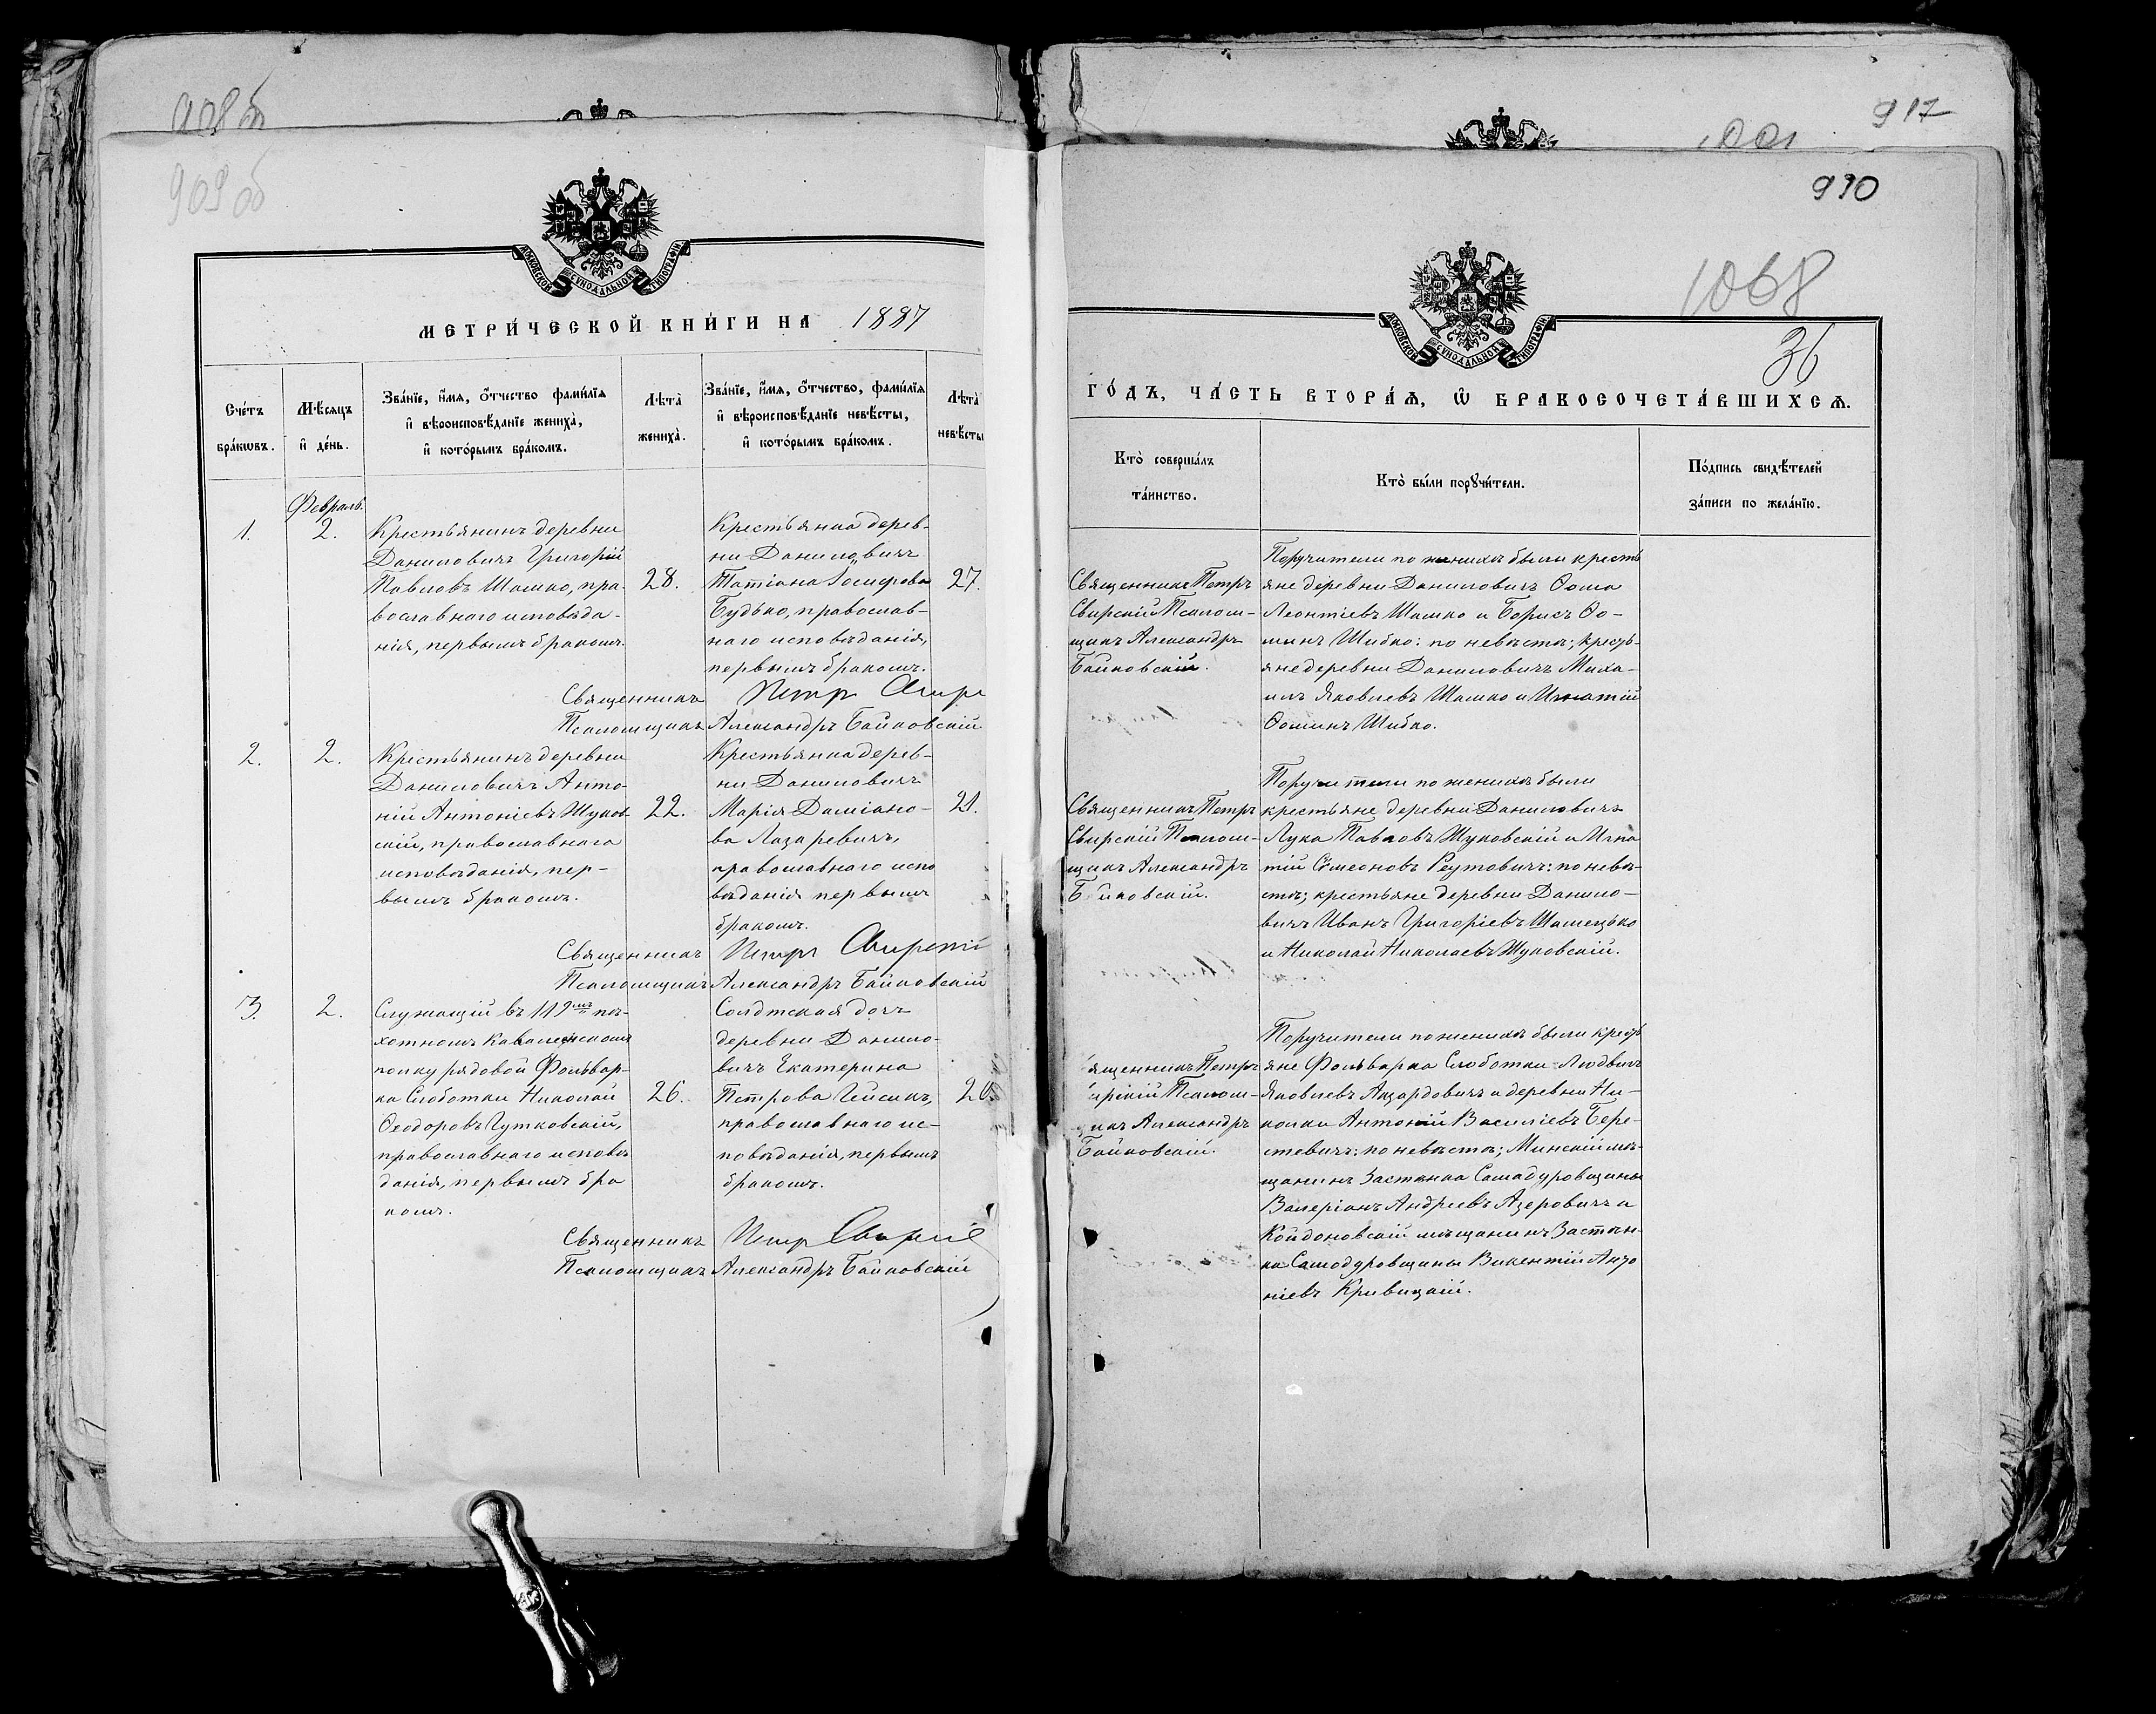 908об
909об
МОСКОВСКОЙ СѴНОДАЛЬНОЙ ТИПОГРАФІИ
МЕТРИ́ЧЕСКОЙ КНИ́ГИ НА 1887
Сче́тъ бра́кѡвъ.
Мѣ́сяцъ и҆ де́нь.
Зва́нїе, и҆́мѧ, ѻ҆́тчество фами́лїѧ
и҆ вѣроисповѣ́данїе жениха̀,
и҆ кото́рымъ бра́комъ.
Лѣта̀ жениха̀.
Зва́нїе, и҆́мѧ, ѻ҆́тчество, фами́лїѧ
и҆ вѣроисповѣ́данїе невѣ́сты,
и҆ кото́рымъ бра́комъ.
Лѣта̀ невѣ́сты
Февраль.
1.
2.
Крестьянинъ деревни
Даниловичъ Григорій
Павловъ Шашко, пра-
вославнаго исповѣда-
нія, первымъ бракомъ.
28.
Крестьянка дерев-
ни Даниловичъ
Татіана Іосифова
Будько, православ-
наго исповѣданія,
первымъ бракомъ.
27.
Священникъ Петръ
Псаломщикъ Александръ Байковскій
2.
2.
Крестьянинъ деревни
Даниловичъ Анто-
ній Антоніевъ Жуков-
скій, православнаго
исповѣданія, пер-
вымъ бракомъ.
22.
Крестьянка дерев-
ни Даниловичъ
Марія Даміано-
ва Лазаревичъ,
православнаго испо
вѣданія первымъ
бракомъ.
21.
Священникъ Петръ Свирскій
Псаломщикъ Александръ Байковскій
3.
2.
Служащій въ 119мъ пѣ-
хотномъ Коломенскомъ
полку рядовой Фольвар-
ка Слободки Николай
Ѳеодоровъ Гутковскій,
православнаго исповѣ
данія, первымъ бра
комъ.
26.
Солдтская дочь
деревни Данило-
вичъ Екатерина
Петрова
православнаго ис-
повѣданія, первымъ
бракомъ.
20.
Священникъ Петръ
Псаломщикъ Александръ Байковскій
917
1001
910
1068
36
МОСКОВСКОЙ СѴНОДАЛЬНОЙ ТИПОГРАФІИ
ГО́ДЪ, ЧА́СТЬ ВТОРА́Ѧ, Ѡ҆ БРАКОСОЧЕТА́ВШИХСѦ.
Кто̀ соверша́лъ та́инство.
Кто̀ бы́ли порꙋчи́тели.
По́дпись свидѣ́телей
за́писи по жела́нїю.
Священникъ Петръ
Свирскій Псалом-
щикъ Александръ
Байковскій.
Поручители по женихѣ были кресть
яне деревни Даниловичъ Ѳома
Леонтіевъ Шашко и Борисъ Ѳо-
минъ Шибко: по невѣстѣ; кресть-
яне деревни Даниловичъ Миха-
илъ Яковлевъ Шашко и Игнатій
Ѳоминъ Шибко.
Священникъ Петръ
Свирскій Псалом-
щикъ Александръ
Байковскій.
Поручители по женихѣ были
крестьяне деревни Даниловичъ
Лука Павловъ Жуковскій и Игна
тій Семеоновъ Реутовичъ: по невѣ-
стѣ; крестьяне деревни Данило-
вичъ Иванъ Григоріевъ
и Николай Николаевъ Жуковскій.
ященникъ Петръ
ирскій Псалом-
щикъ Александръ
Байковскій.
Поручители по женихѣ были кресть
яне Фольварка Слободки Людвигъ
Яковлевъ и деревни Ни-
колки Антоній Василіевъ Бере-
стевичъ: по невѣстѣ; Минскій мѣ-
щанинъ Застѣнка Самадуровщины
Валеріанъ Андреевъ Азеровичъ и
Койдоновскій мѣщанинъ Застѣн-
ка Самодуровщины Викентій Анто
ніевъ Кривицкій.